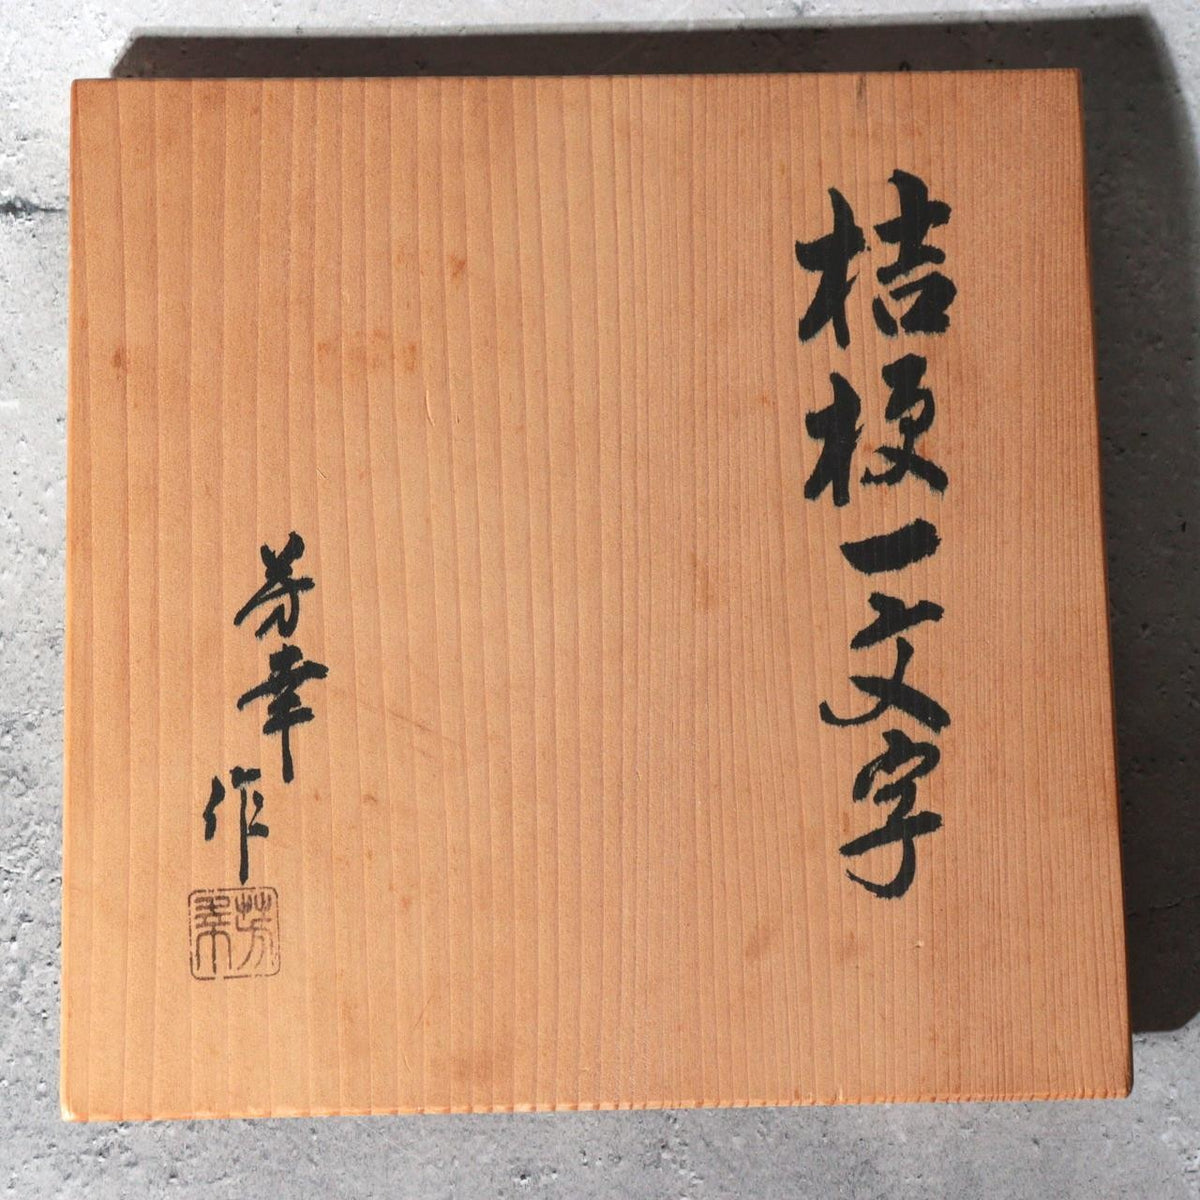 桔梗一文字
芳幸作
芳幸